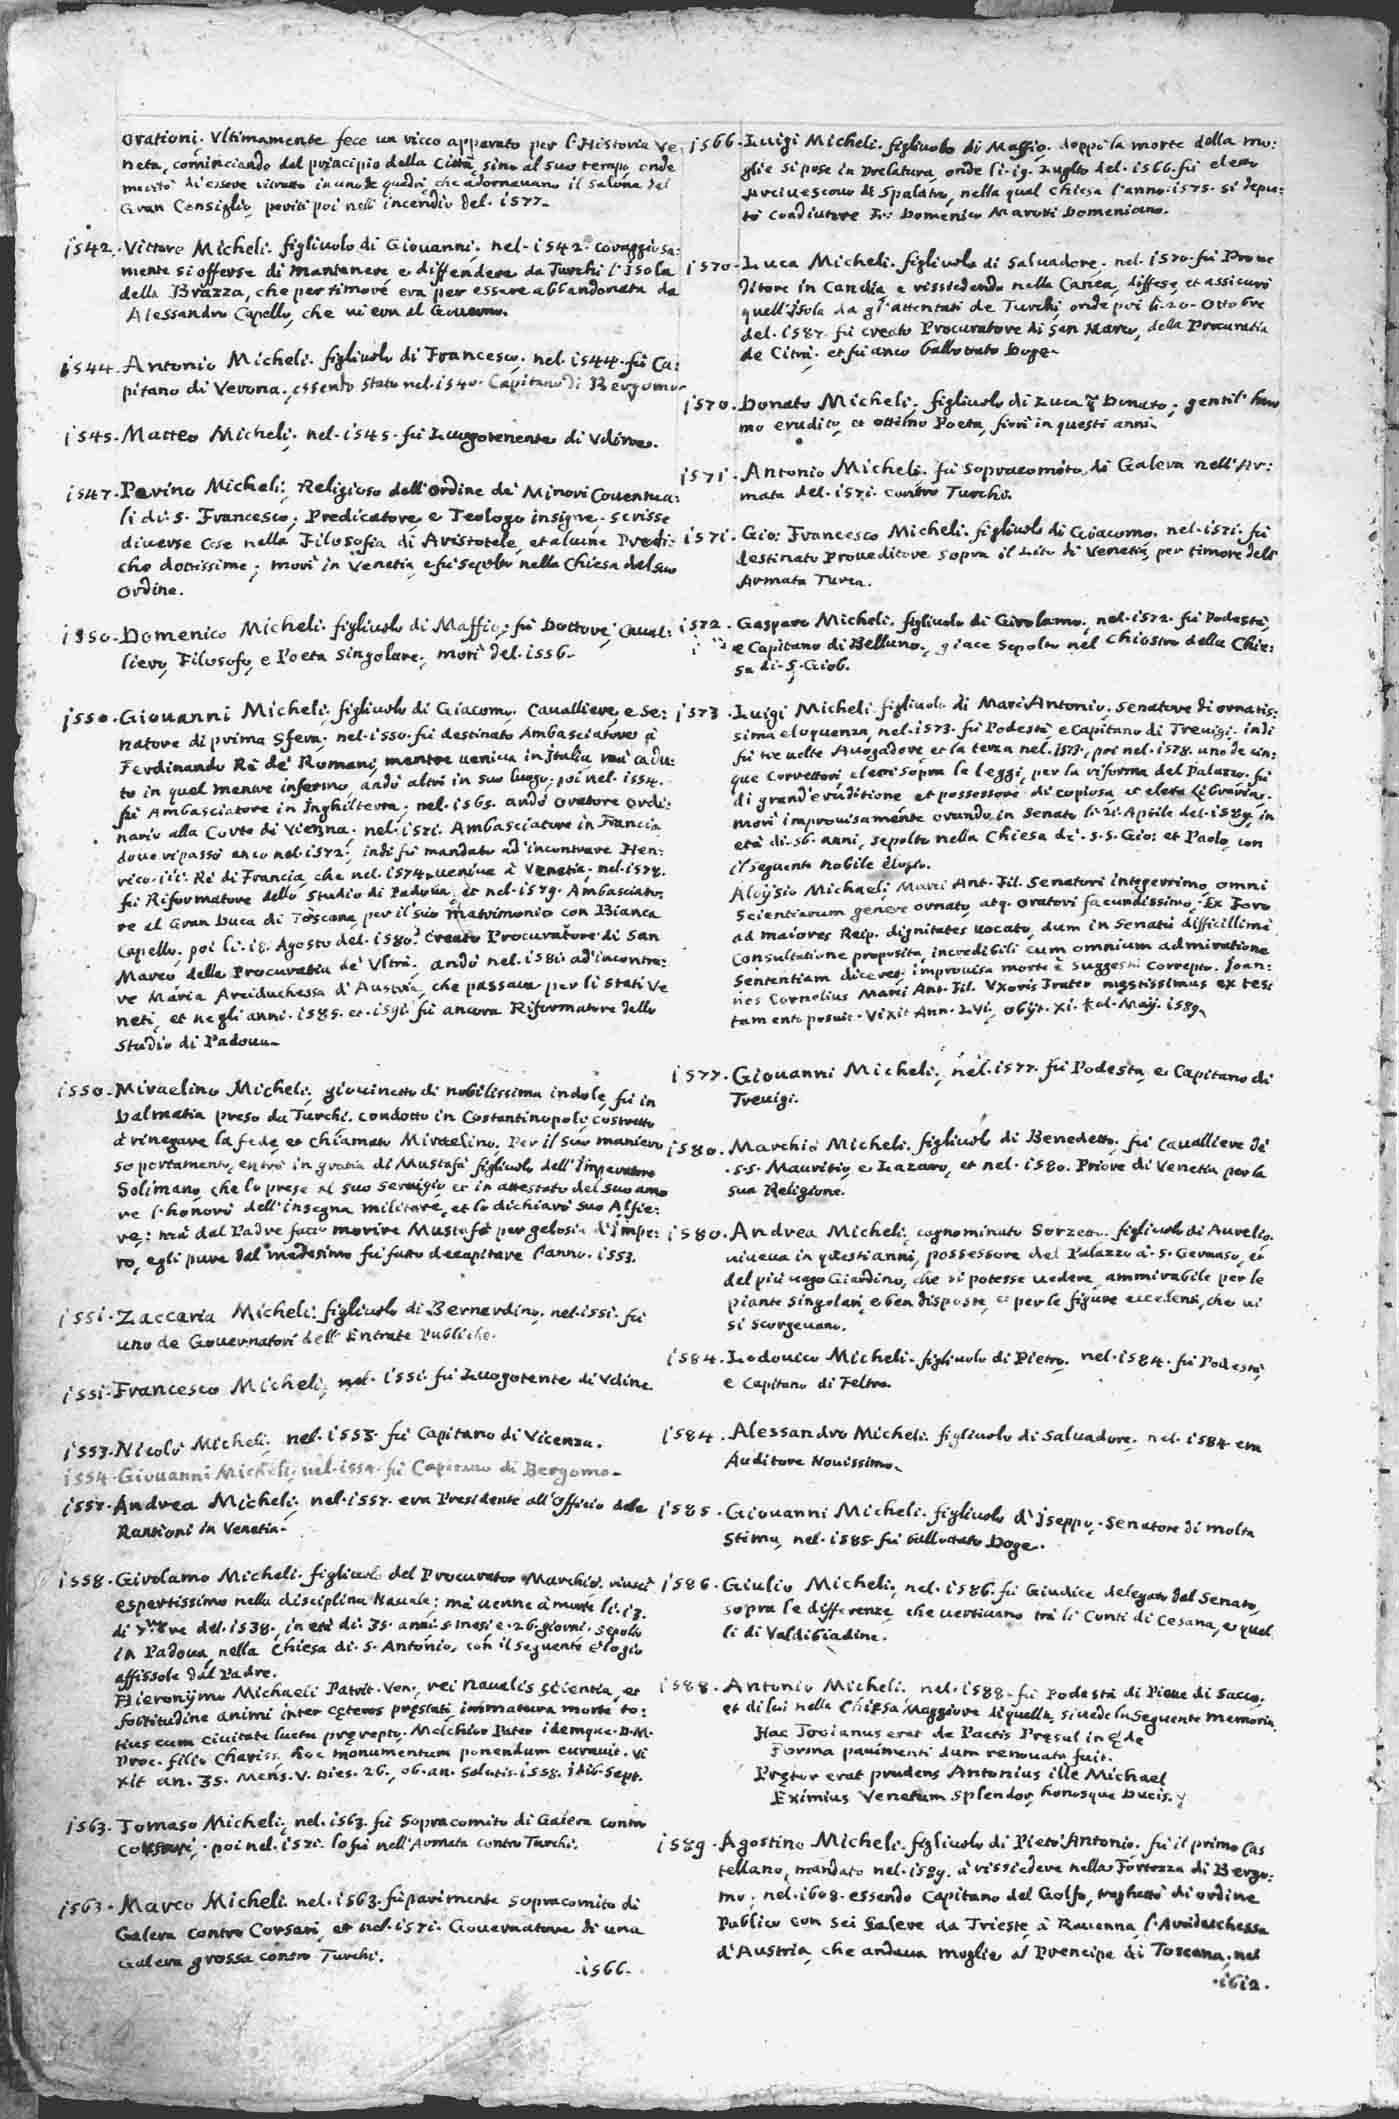 orationi. Vltimamente fece un ricco apparato per l'Historia Ve
neta, cominciando dal principio della Città, sino al suo tempo, onde
meritò di essere ritratto in uno de quadri, che adornavano il salone del
Gran Consiglio, periti poi nell' incendio del. 1577.
1542. Vittore Micheli. figliuolo di Giovanni, nel. 1542. coraggiosa:
mente si offerse di mantenere e diffendere da Turchi l'Isola
della Brazza, che per timore era per essere abbandonata da
Alessandro Capello, che ui era al Gouerno.
1544. Antonio Micheli. figliuolo di Francesco, nel. 1544. fù Ca:
pitano di Verona, essendo stato nel. 1540. Capitano di Bergomo.
1545. Matteo Micheli, nel. 1545. fù Luogotenente di Vdine.
1547. Perino Micheli, Religioso dell'Ordine de' Minori Conuentua:
li di. S. Francesco, Predicatore, e Teologo insigne. scrisse
diuerse cose nella Filosofia di Aristotele, et alcune Predi:
che dottissime; morì in Venetia, e fù sepolto nella Chiesa del suo
Ordine.
1550. Domenico Micheli. figliuolo di Maffio, fù Dottore, Caual:
liere, Filosofo, e Poeta singolare, morì del. 1556.
1550. Giouanni Micheli. figliuolo di Giacomo. Caualliere, e Se:
natore di prima Sfera. nel. 1550. fù destinato Ambasciatore à
Ferdinando Rè de' Romani, mentre ueniua in Italia mà cadu:
to in quel mentre infermo, andò altri in suo luogo; poi nel. 1554.
fù Ambasciatore in Inghilterra, nel. 1565. andò Oratore Ordi:
nario alla Corte di Vienna. nel. 1571. Ambasciatore in Francia
doue ripassò anco nel. 1572, indi fù mandato ad incontrare Hen:
rico. iii. Rè di Francia, che nel. 1574. ueniua à Venetia. nel. 1578.
fù Riformatore dello Studio di Padoua, et nel. 1579. Ambasciato:
re al Gran Duca di Toscana, per il suo matrimonio con Bianca
Capello. poi li. 18. Agosto del. 1580. Creato Procuratore di San
Marco della Procuratia de' Vltrà, andò nel. 1581. ad'incontra:
re Maria Arciduchessa d'Austria, che passaua per li Stati Ve
neti, et negli anni. 1585. et. 1591. fù ancora Riformatore dello
Studio di Padoua.
1550. Miraelino Micheli, giouinetto di nobilissima indole, fù in
Dalmatia preso da Turchi. condotto in Costantinopoli, costretto
à rinegare la fede, et chiamato Miraelino. Per il suo maniero
so portamento, entrò in gratia di Mustafà figliuolo dell'Imperatore
Solimano, che lo prese al suo seruigio et in attestato del suo amo
re l'honorò dell'insegna militare, et lo dichiarò suo Alfie:
re; mà dal Padre fatto morire Mustafà per gelosia d'Impe:
ro, egli pure dal medesimo fù fatto decapitare l'anno. 1553.
1551. Zaccaria Micheli. figliuolo di Bernardino, nel. 1551. fù
uno de Gouernatori dell' Entrate Publiche.
1551. Francesco Micheli, nel. 1551. fù Luogotente di Vdine
1553. Nicolò Micheli, nel. 1553. fù Capitano di Vicenza.
1554. Giouanni Micheli, nel. 1554. fù Capitano di Bergomo.
1557. Andrea Micheli, nel. 1557. era Presidente all'Officio dele
Rantioni in Venetia.
1558. Girolamo Micheli. figliuolo del Procurator Marchiò. riuscì
espertissimo nella disciplina Nauale; mà uenne à morte li. 13.
di del. 1538. in età di. 35. anni. 5. mesi e. 26. giorni. sepolto
in Padoua, nella Chiesa di. S. Antonio, con il seguente elogio
affissole dal Padre.
Hieronymo Michaeli Patrit. Ven, rei naualis scientia, et
fortitudine animi inter cęteros pręstati, immatura morte to:
tius cum ciuitate luctu pręrepto. Melchior Pater idemque. D. M.
Proc. filio chariss. hoc monumentum ponendum curauit. Vi
xit an. 35. Mens. V. Dies. 26. ob. an. salutis. 1558. Sept.
1563. Tomaso Micheli, nel. 1563. fù sopracomito di Galera contro
Corsari, poi nel. 1571. lo fù nell'Armata contro Turchi.
1563. Marco Micheli. nel. 1563. fù parimente sopracomito di
Galera contro Corsari, et nel. 1571. Gouernatore di una
Galera grossa contro Turchi.
.1566.
1566. Luigi Micheli. figliuolo di Maffio. doppò la morte della mo:
glie si pose in Prelatura, onde li. 19. Luglio del. 1566. fù eletto
Arciuescouo di Spalatro, nella qual Chiesa l'anno. 1575. si depu:
tò Coadiutore Fr: Domenico Marotti Domenicano.
1570. Luca Micheli. figliuolo di Saluadore. nel. 1570. fù Proue
ditore in Candia, e rissiedendo nella Canea, diffese, et assicurò
quell'Isola da gl'attentati de Turchi, onde poi li. 20. Ottobre
del. 1587. fù creato Procuratore di San Marco, della Procuratia
de Citrà. et fù anco ballottato Doge.
1570. Donato Micheli. figliuolo di Luca Donato, gentil'huo
mo erudito, et ottimo Poeta, fiorì in questi anni.
1571. Antonio Micheli. fù sopracomito di Galera nell'Ar:
mata del. 1571. contro Turchi.
1571. Gio: Francesco Micheli. figliuolo di Giacomo. nel. 1571. fù
destinato Proueditore sopra il Lito di Venetia, per timore dell'
Armata Turca.
1572. Gasparo Micheli. figliuolo di Girolamo, nel. 1572. fù Podestà,
e Capitano di Belluno, giace sepolto nel Chiostro della Chie:
sa di. S. Giob.
1573. Luigi Micheli figliuolo di Marc'Antonio, senatore di ornatis:
sima eloquenza, nel. 1573. fù Podestà e Capitano di Treuigi. indi
fù tre uolte Auogadore et la terza nel. 1577, poi nel. 1578. uno de cin:
que Correttori eletti sopra le leggi, per la riforma del Palazzo. fù
di grand'eruditione et possessore di copiosa, et eletta libraria.
morì improuisamente orando in Senato li. 21. Aprile del. 1589, in
età di. 56. anni, sepolto nella Chiesa di. S. S. Gio: et Paolo, con
il seguente nobile Elogio.
Aloysio Michaeli Marci Ant. Fil. Senatori integerrimo, omni
scientiarum genere ornato, atq. oratori facundissimo, Ex Foro
ad maiores Reip. dignitates uocato, dum in Senatu difficillima
Consultatione proposita, incredibili cum omnium admiratione
Sententiam diceret, improuisa morte è suggestu correpto. Ioan:
nes Cornelius Marci Ant. Fil. Vxoris Frater męstissimus ex tes:
tamento posuit. Vixit Ann. LVI, obijt. XI. Kal. Maij. 1589.
1577. Giouanni Micheli, nel. 1577. fù Podestà, e Capitano di
Treuigi.
1580. Marchiò Micheli. figliuolo di Benedetto. fù Caualliere de'
. S. S. Mauritio, e Lazaro, et nel. 1580. Priore di Venetia per la
sua Religione.
1580. Andrea Micheli, cognominato Sorzetto. figliuolo di Aurelio.
uiueua in questi anni, possessore del Palazzo à. S. Geruaso, et
del più uago Giardino, che si potesse uedere, ammirabile per le
piante singolari, e ben disposte, et per le figure eccelenti, che ui
si scorgeuano.
1584. Lodouico Micheli. figliuolo di Pietro, nel. 1584. fù Podestà,
e Capitano di Feltre.
1584. Alessandro Micheli. figliuolo di Saluadore, nel. 1584 era
Auditore Nouissimo.
1585. Giouanni Micheli. figliuolo d'Iseppo, Senatore di molta
stima, nel. 1585. fù ballottato Doge.
1586. Giulio Micheli, nel. 1586. fù Giudice delegato dal Senato,
sopra le differenze, che uertiuano trà li Conti di Cesana, e quel
li di Valdibiadine.
1588. Antonio Micheli. nel. 1588. fù Podestà di Pieue di Sacco,
et di lui nella Chiesa Maggiore di quella, si uede la seguente memoria.
Hac Troianus erat de Pactis Pręsul in ęde
Forma pauimenti dum renouata fuit.
Prętor erat prudens Antonius ille Michael
Eximius Venetum splendor, honosque Ducis.
1589. Agostino Micheli. figliuolo di Pietr'Antonio. fù il primo Cas
tellano, mandato nel. 1589. à rissiedere nella Fortezza di Bergo:
mo, nel. 1608. essendo Capitano del Golfo, traghettò di ordine
Publico con sei Galere da Trieste à Rauenna l'Arciduchessa
d'Austria, che andaua moglie al Prencipe di Toscana, nel
.1612.